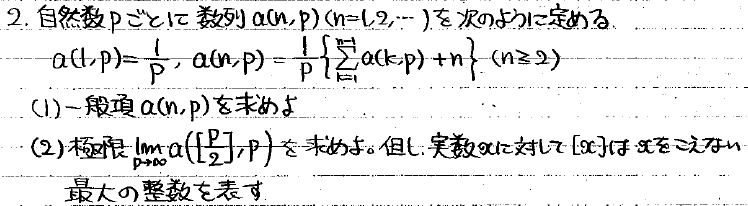 2. 自然数pごとに数列a(n,p)(n=1,2,…)を次のように定める。
a(1,p)=1/p, a(n,p)=1/p{∑_{k=1}^{n-1}a(k,p)+n} (n≧2)
(1)一般項a(n,p)を求めよ
(2)極限lim_{p→∞}a([p/2],p)を求めよ。但し、実数xに対して[x]はxをこえない
最大の整数を表す